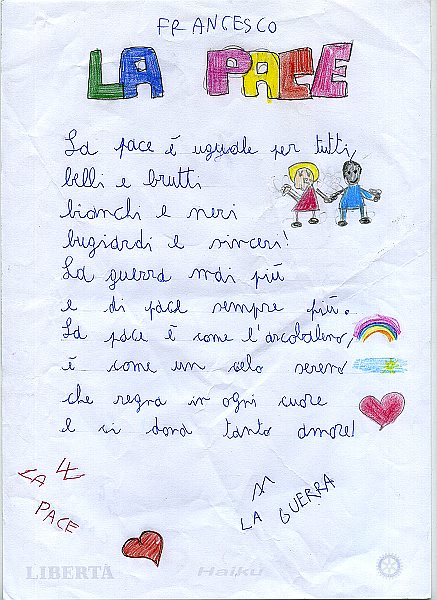 FRANCESCO
LA PACE
La pace è uguale per tutti,
belli e brutti
bianchi e neri
bugiardi e sinceri!
La guerra mai più
e di pace sempre più.
La pace è come l'arcobaleno,
è come un celo sereno
che regna in ogni cuore
e ci dona tanto amore!
W
LA
PACE
M
LA GUERRA
LIBERTÀ
Haiku